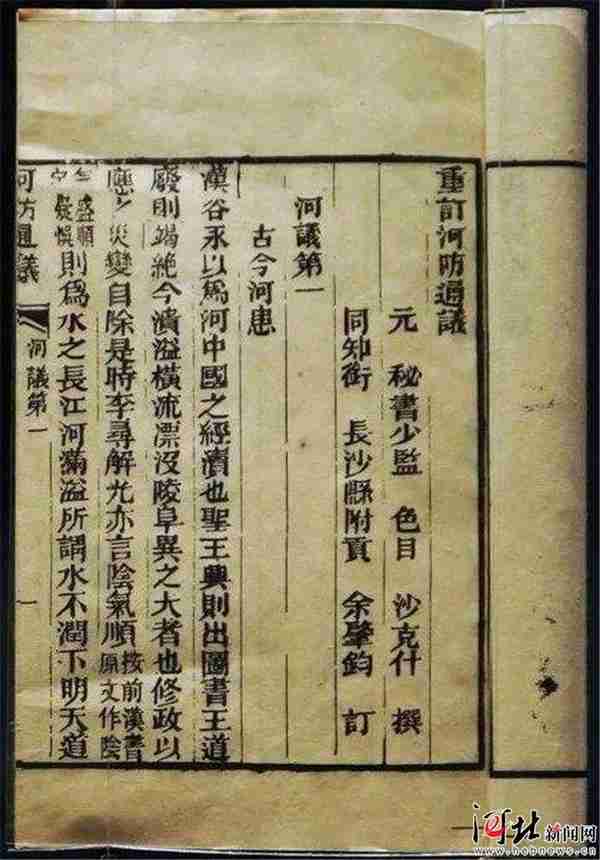 重訂河防通議
元 秘書少監 色目 沙克什 撰
同知銜 長沙縣附貢 余肇鈞 訂
河議第一
古今河患
漢谷永以爲河中國之經瀆也聖王興則出圖書王道
廢則竭絶今潰溢橫流漂沒陵阜異之大者也修政以
應之災變自除是時李尋解光亦言陰氣順按前漢書原文作陰
盛順疑悞則爲水之長江河滿溢所謂水不潤下明天道
河防通議 河議第一 一
河北新闻网
www.hebnews.cn